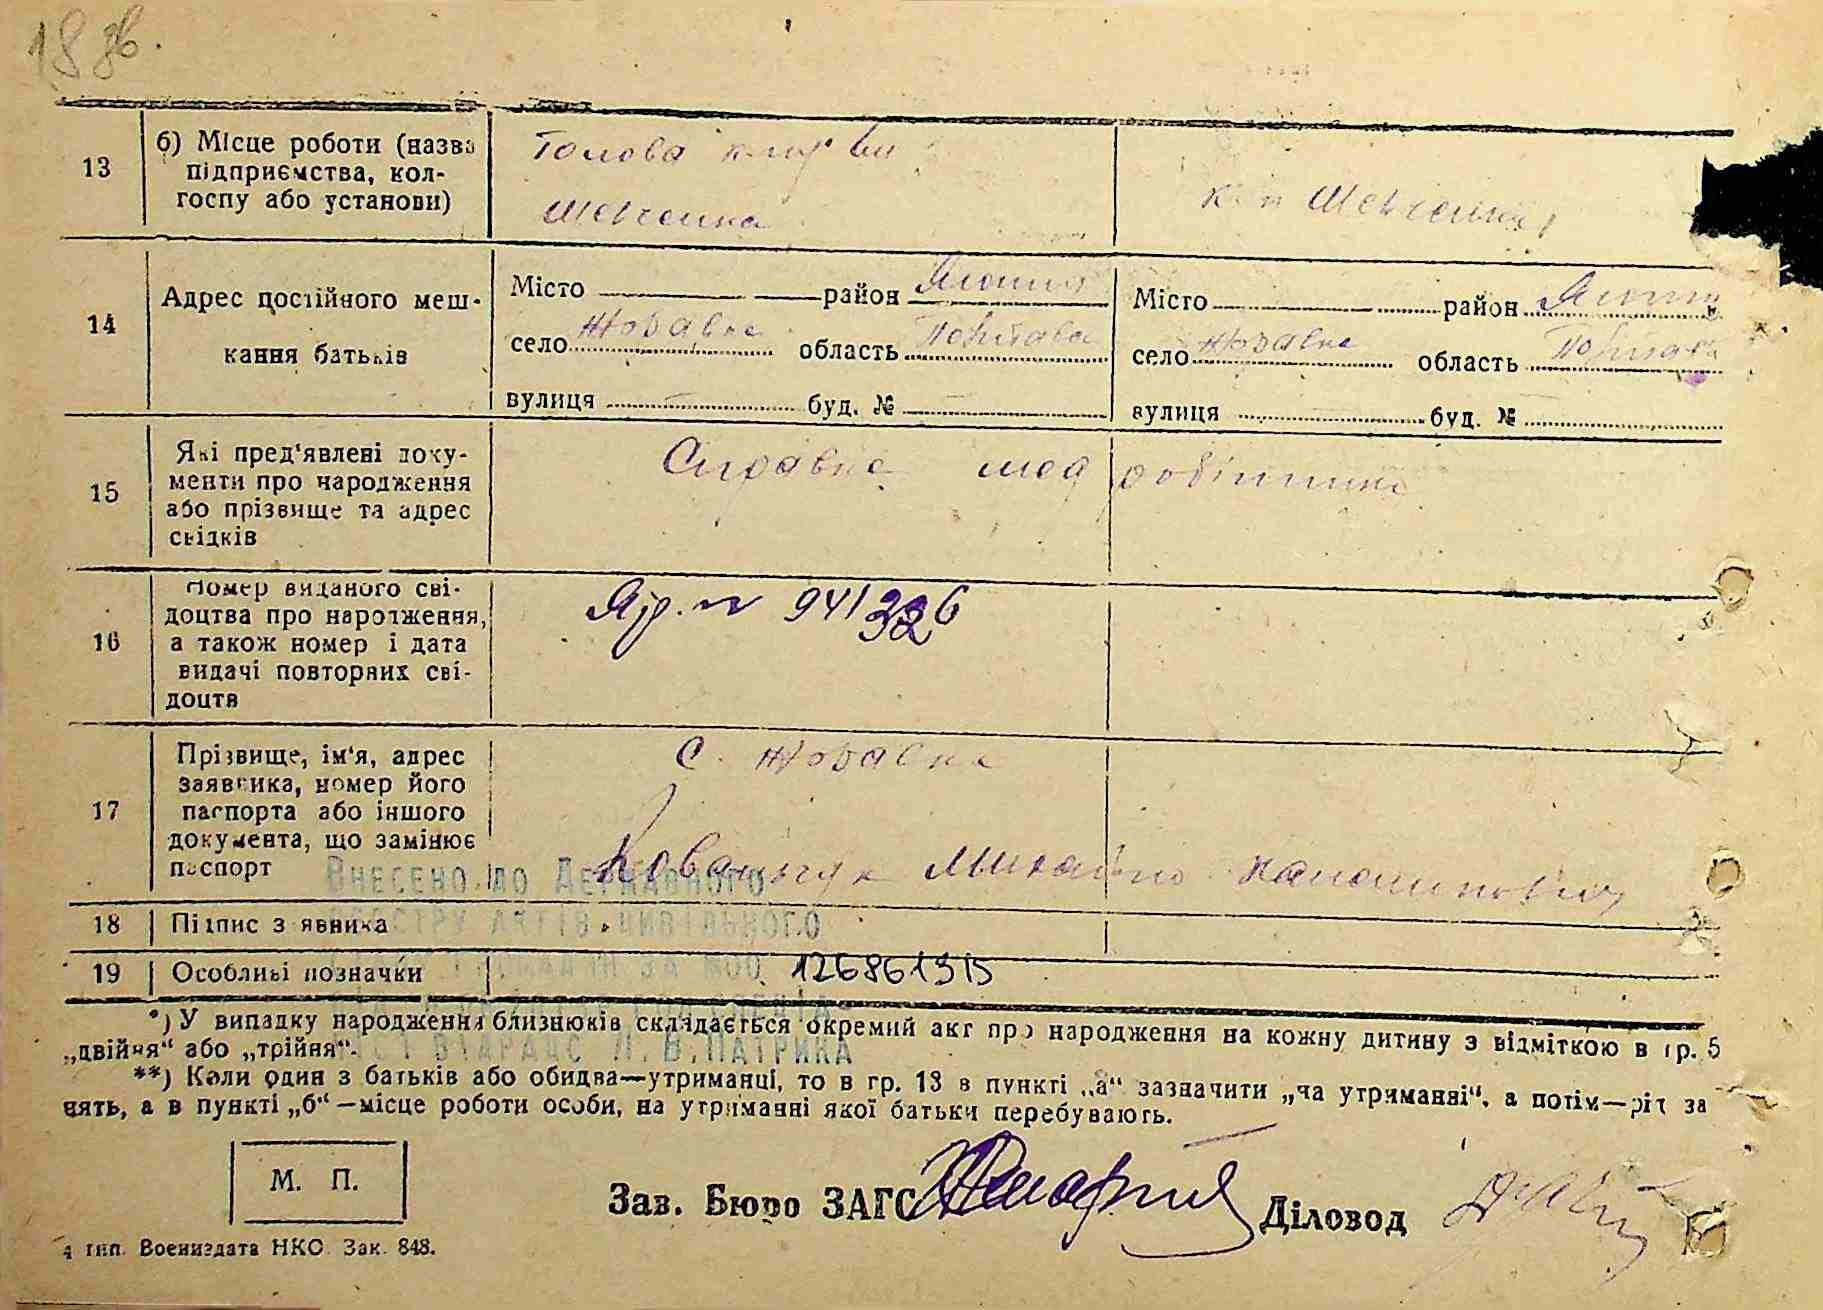 18 зв.
13
б) Місце роботи (назва
підприємства, кол-
госпу або установи)
Голова
Шевченка
к-п Шевченка
14
Адрес постійного меш-
кання батьків
Місто район Яготин
село Жоравка область Полтава
вулиця буд. №
Місто район Яготин
село Жоравка область Полтава
вулиця буд. №
15
Які пред'явлені доку-
менти про народження
або прізвище та адрес
свідків
Справка мед робітника
16
Номер виданого сві-
доцтва про народження,
а також номер і дата
видачі повторних сві-
доцтв
№ 941
17
Прізвище, ім'я, адрес
заявника, номер його
паспорта або іншого
документа, що замінює
паспорт
С. Жоравка
Ковальчук Михайло
Внесено до Державного
реєстру актів цивільного
за код 126861315
18 Підпис заявника
19 Особливі позначки
Л. В. Патрика
*) У випадку народження близнюків складається окремий акт про народження на кожну дитину з відміткою в гр. 5
„двійня“ або „трійня“.
**) Коли один з батьків або обидва—утриманці, то в гр. 13 в пункті „а“ зазначити „на утриманні“, а потім—рід за
нять, а в пункті „б“—місце роботи особи, на утриманні якої батьки перебувають.
М. П.
Зав. Бюро ЗАГС
Діловод
4 тип. Воениздата НКО. Зак. 848.